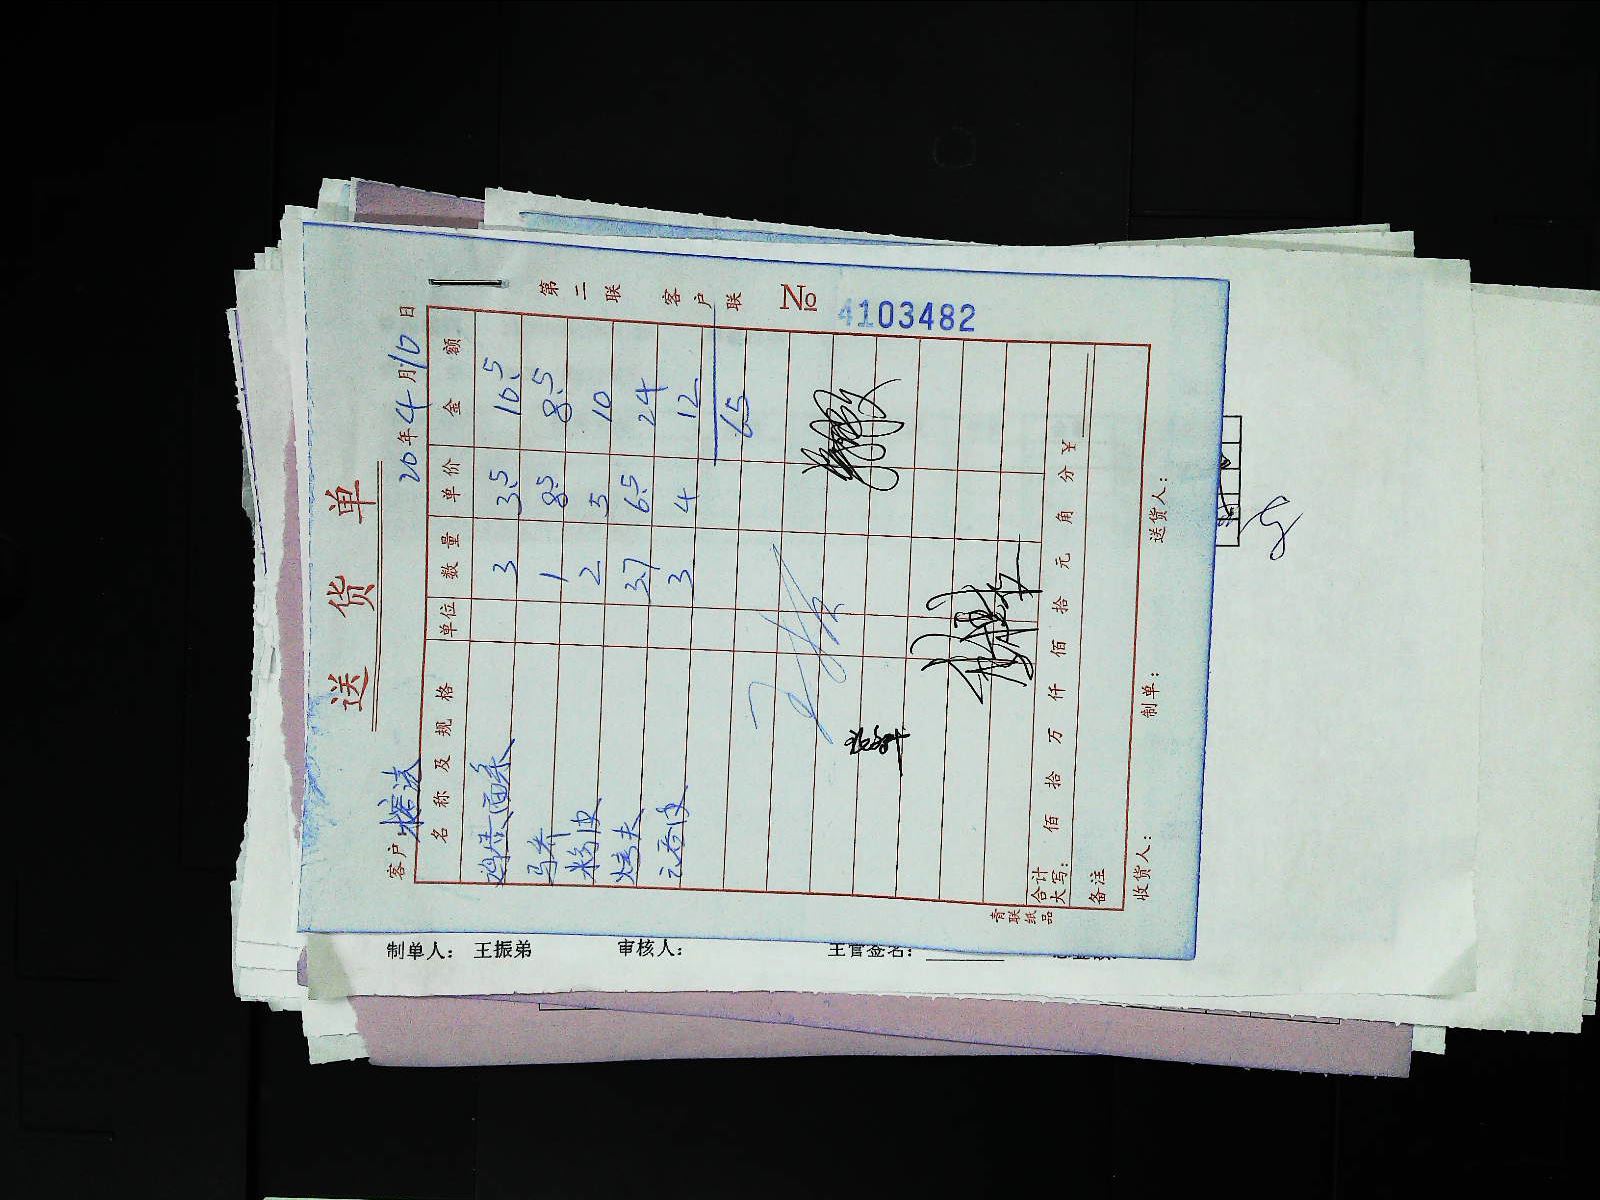 送货单
第二联 客户联
No 4103482
客户
20年4月10日
名称及规格 单位 数量 单价 金额
3 3.5 10.5
1 8.5 8.5
粉皮 2 5 10
烤夫 3.7 6.5 24
3 4 12
65
合计大写: 佰 拾 万 仟 佰 拾 元 角 分 ¥
备注
收货人: 制单: 送货人:
青联纸品
制单人: 王振弟 审核人: 主管签名: